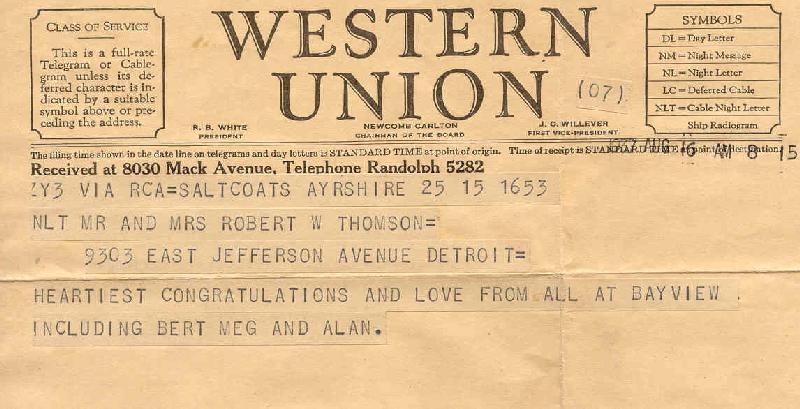 CLASS OF SERVICE
This is a full-rate
Telegram or Cable-
gram unless its de-
ferred character is in-
dicated by a suitable
symbol above or pre-
ceding the address.
WESTERN
UNION
(07).
R. B. WHITE
PRESIDENT
NEWCOMB CARLTON
CHAIRMAN OF THE BOARD
J. C. WILLEVER
FIRST VICE-PRESIDENT
SYMBOLS
DL = Day Letter
NM = Night Message
NL = Night Letter
LC = Deferred Cable
NLT = Cable Night Letter
Ship Radiogram
The filing time shown in the date line on telegrams and day letters is STANDARD TIME at point of origin. Time of receipt is STANDARD TIME at point of destination.
1937 AUG 16 AM 8 15
Received at 8030 Mack Avenue, Telephone Randolph 5282
ZY3 VIA RCA=SALTCOATS AYRSHIRE 25 15 1653
NLT MR AND MRS ROBERT W THOMSON=
9303 EAST JEFFERSON AVENUE DETROIT=
HEARTIEST CONGRATULATIONS AND LOVE FROM ALL AT BAYVIEW .
INCLUDING BERT MEG AND ALAN.